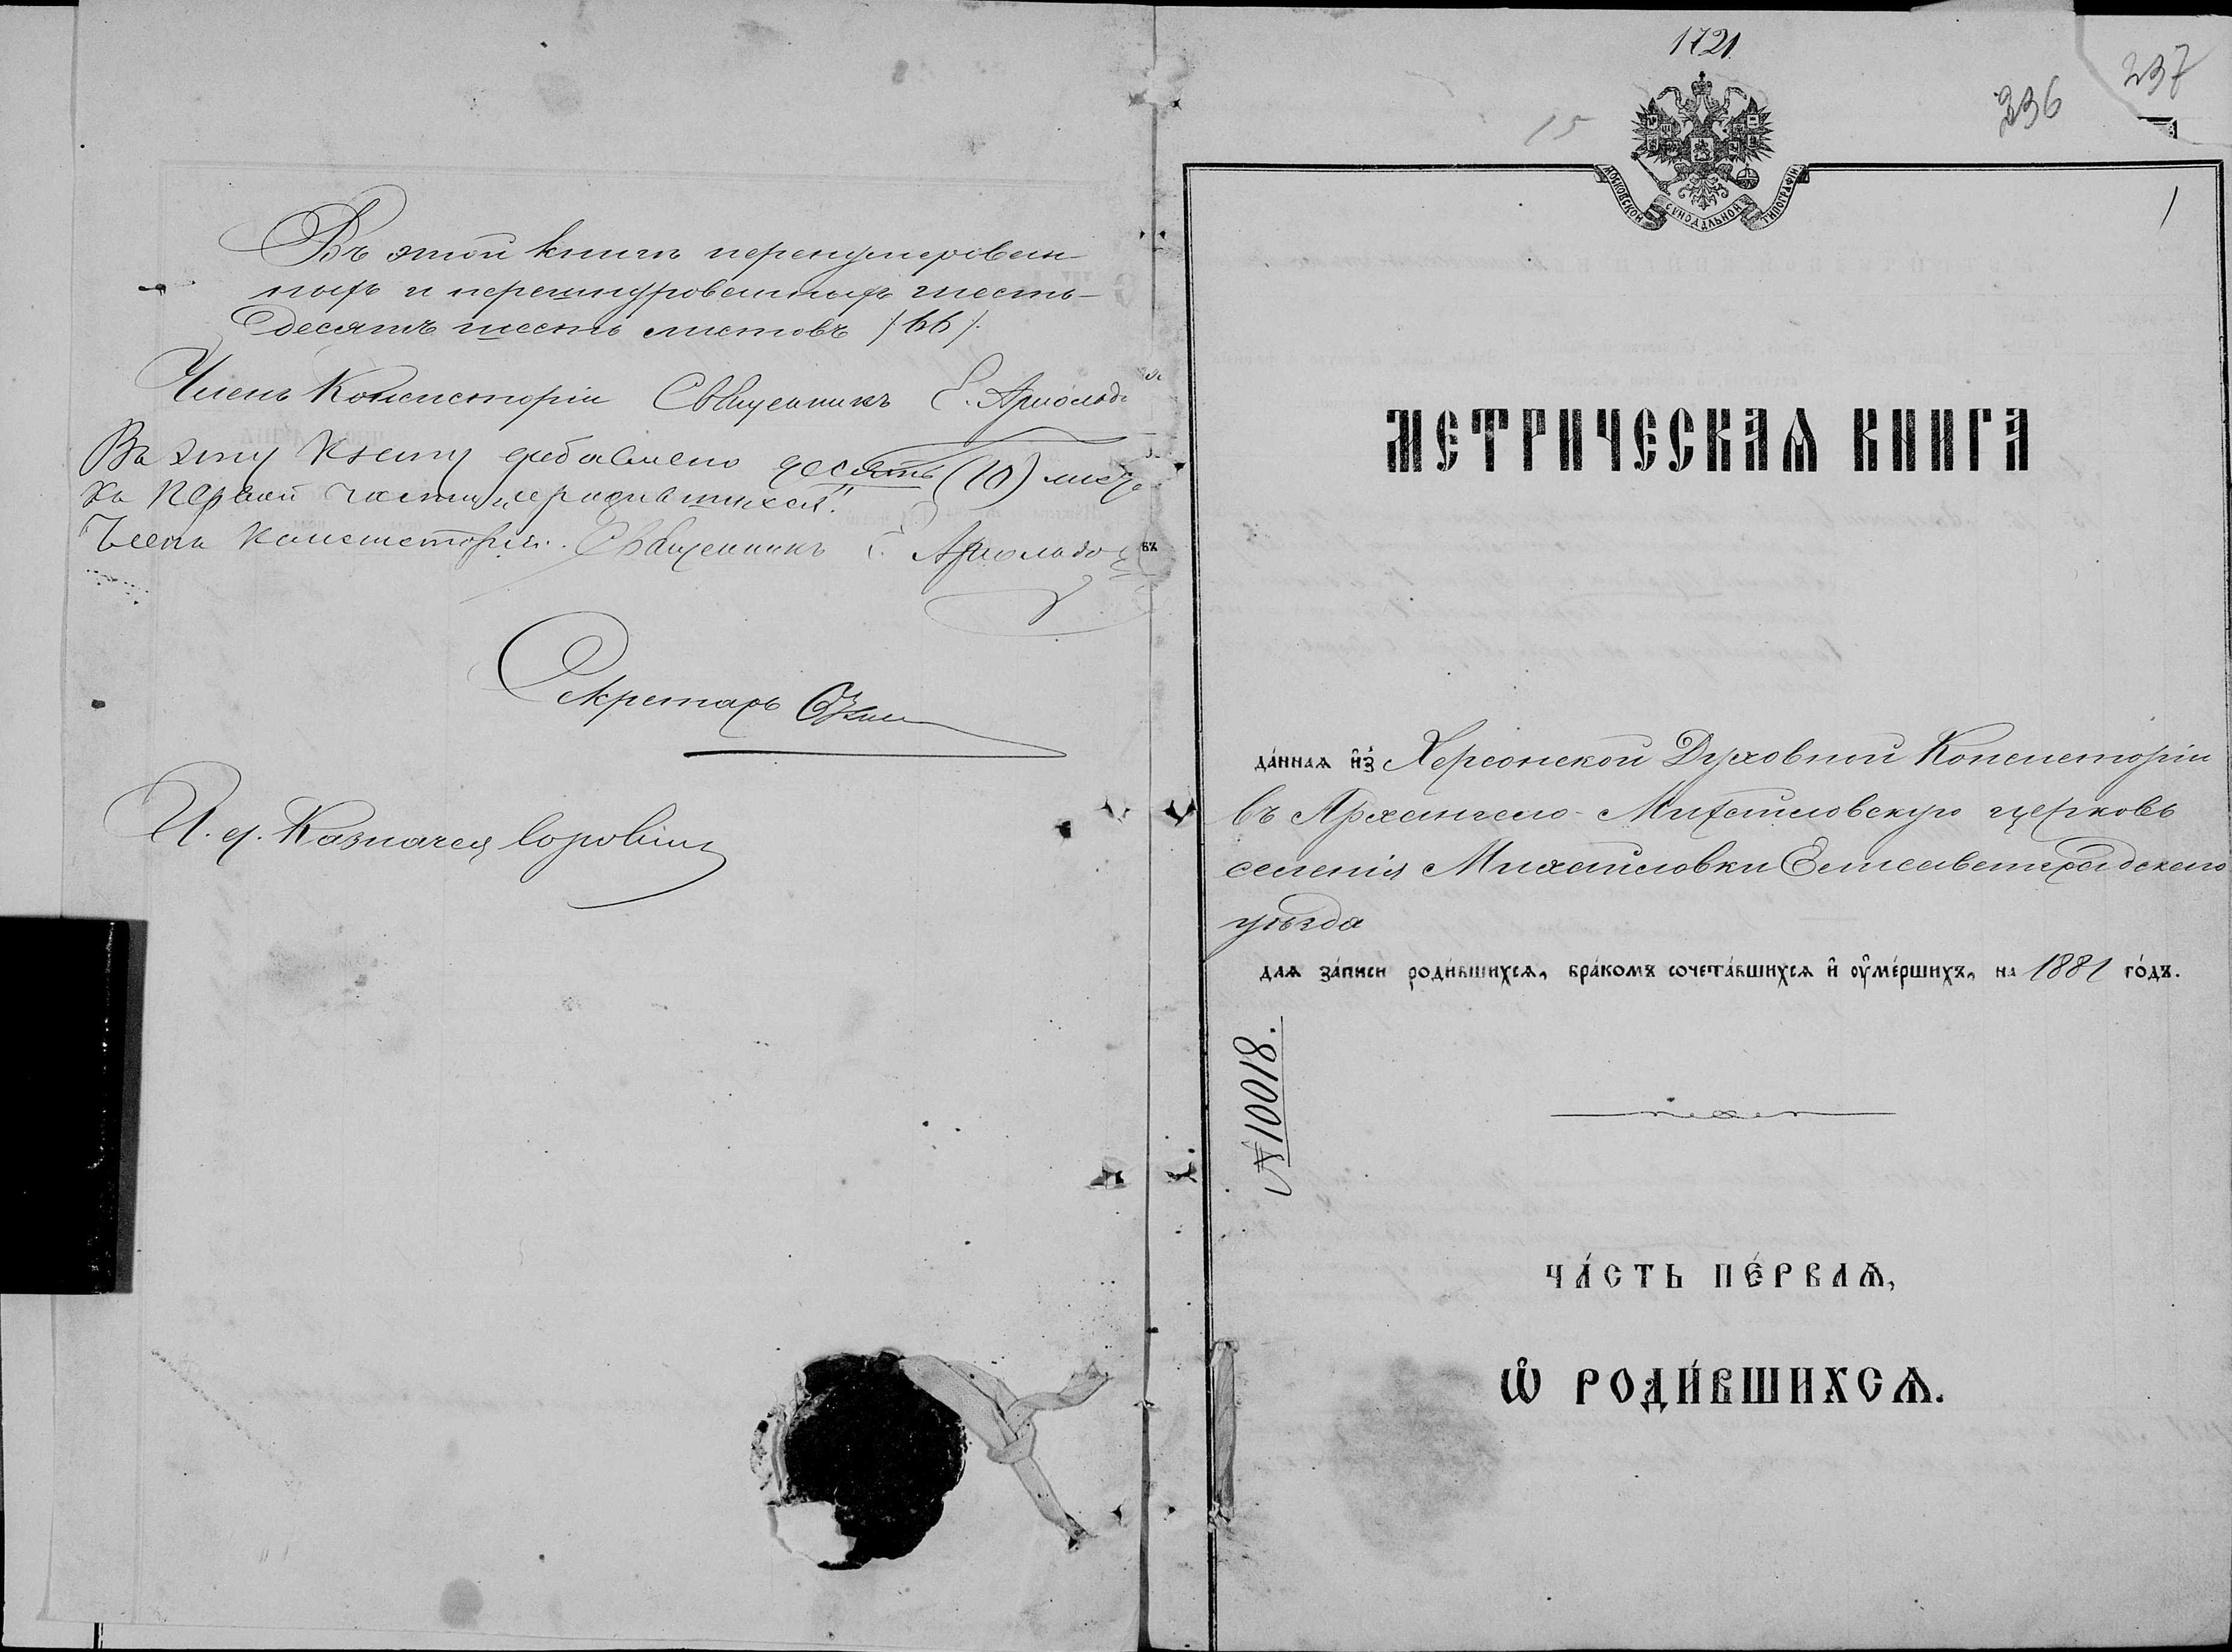 Въ этой книгѣ перенумерован-
ныхъ и перешнурованныхъ шесть-
десятъ шесть листовъ /66/.
Членъ Консисторіи Священникъ Е. Арнольдо
Въ эту книгу добавлено десять (10) лист
къ первой части „о родившихся“.
Членъ Консисторіи Священникъ Е. Арнольдо
Секретарь
И. д. Казначея
1721
237
236
15
МОСКОВСКОЙ СѴНОДАЛЬНОЙ ТИПОГРАФІИ
1
МЕТРИЧЕСКАѦ КНИГА
да́ннаѧ и҆з̾ Херсонской Духовной Консисторіи
въ Архангело-Михайловскую церковь
селенія Михайловки Елисаветградского
уѣзда
длѧ за́писи роди́вшихсѧ, бра́комъ сочета́вшихсѧ и҆ ᲂу҆ме́ршихъ, на 1881 го́дъ.
№ 10018.
ЧА́СТЬ ПЕ́РВАѦ,
Ѽ РОДИ́ВШИХСѦ.